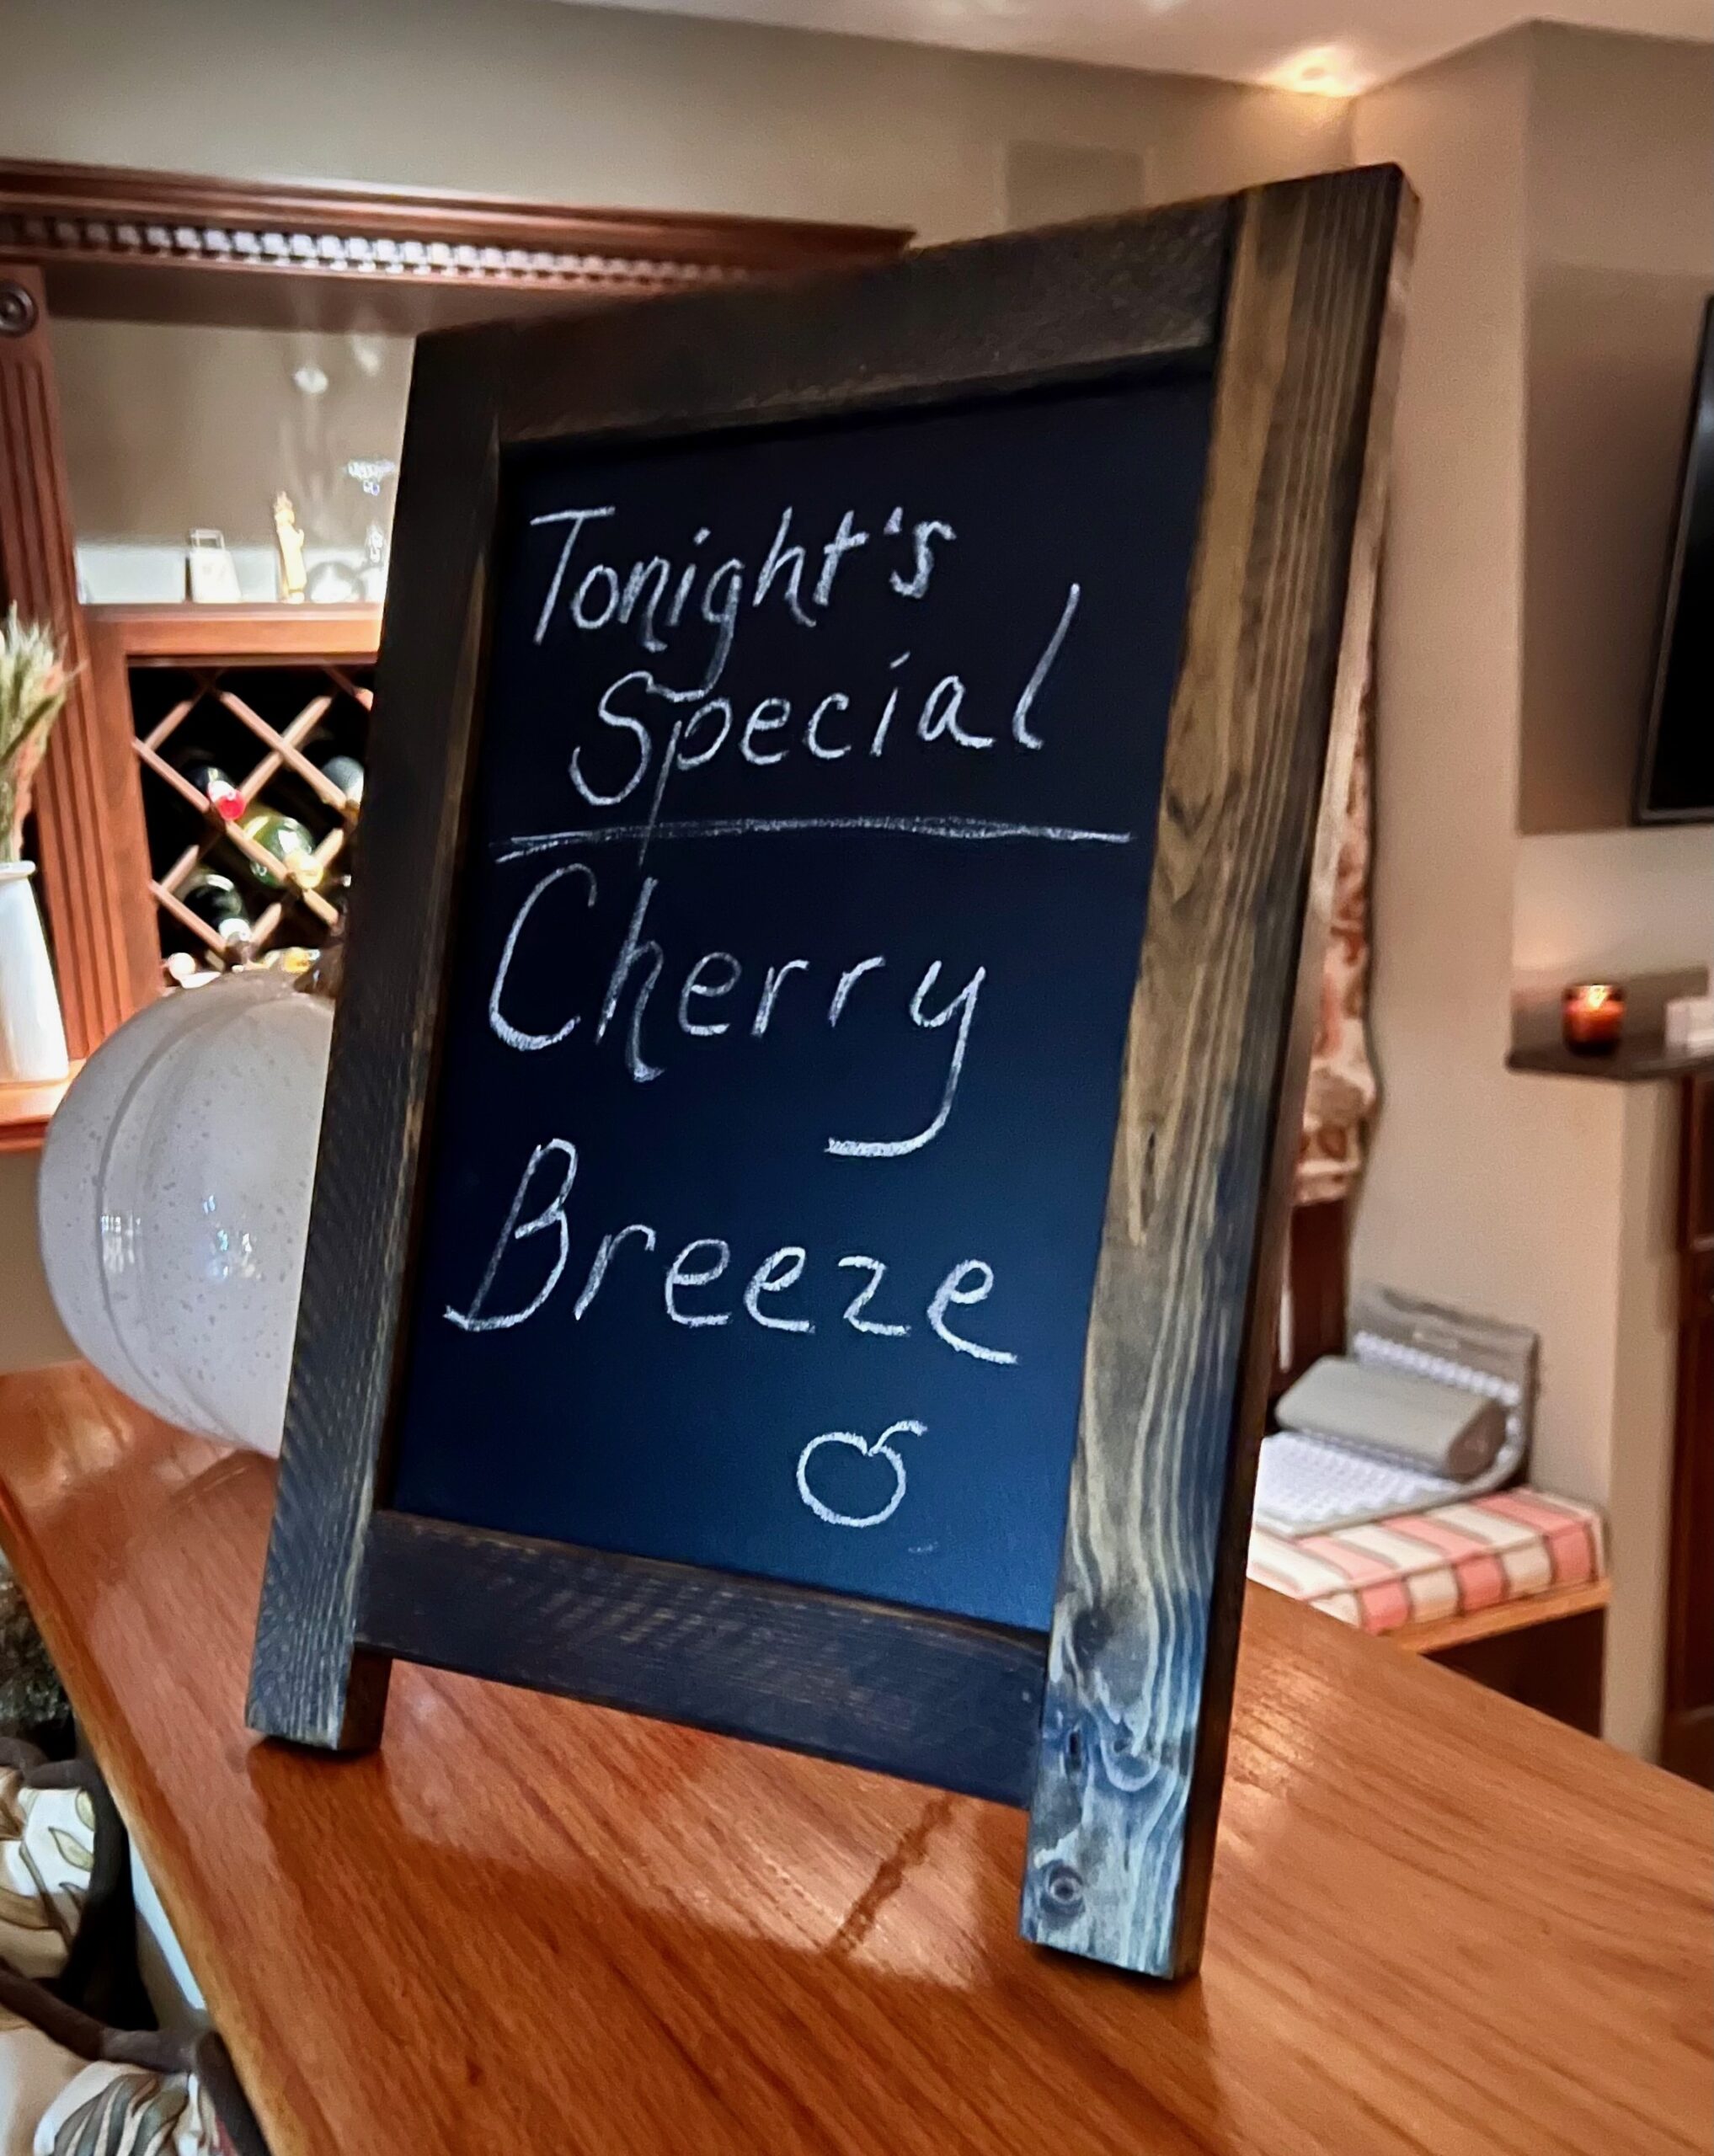 Tonight's
Special
Cherry
Breeze